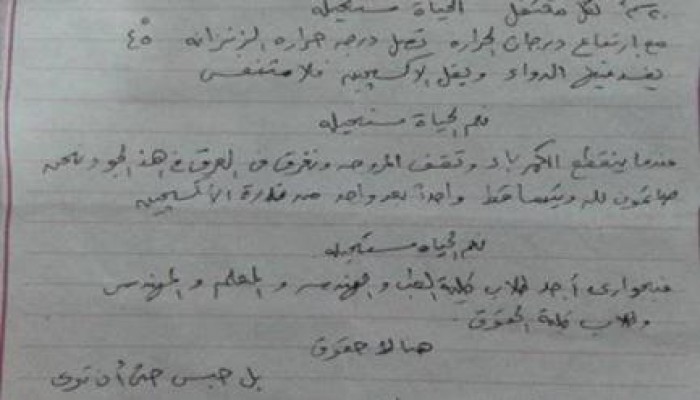 لكل معتقل الحياة مستحيله
مع ارتفاع درجات الحراره تصل درجه حراره الزنزانه ٤٥
يفسد فيها الدواء ويقل الاكسجين فلا متنفس
نعم الحياة مستحيله
عندما ينقطع الكهرباء وتقف المروحه ونغرق في العرق في هذا الجو ونحن
صائمون لله ويتساقط واحداً بعد واحد من قلة الأكسجين
نعم الحياه مستحيله
فبجواري أجد طلاب كلية الطب والهندسه والمعلم والمهندس
وطلاب كلية الحقوق
هنا لا حقوق
بل حبس حتى أن